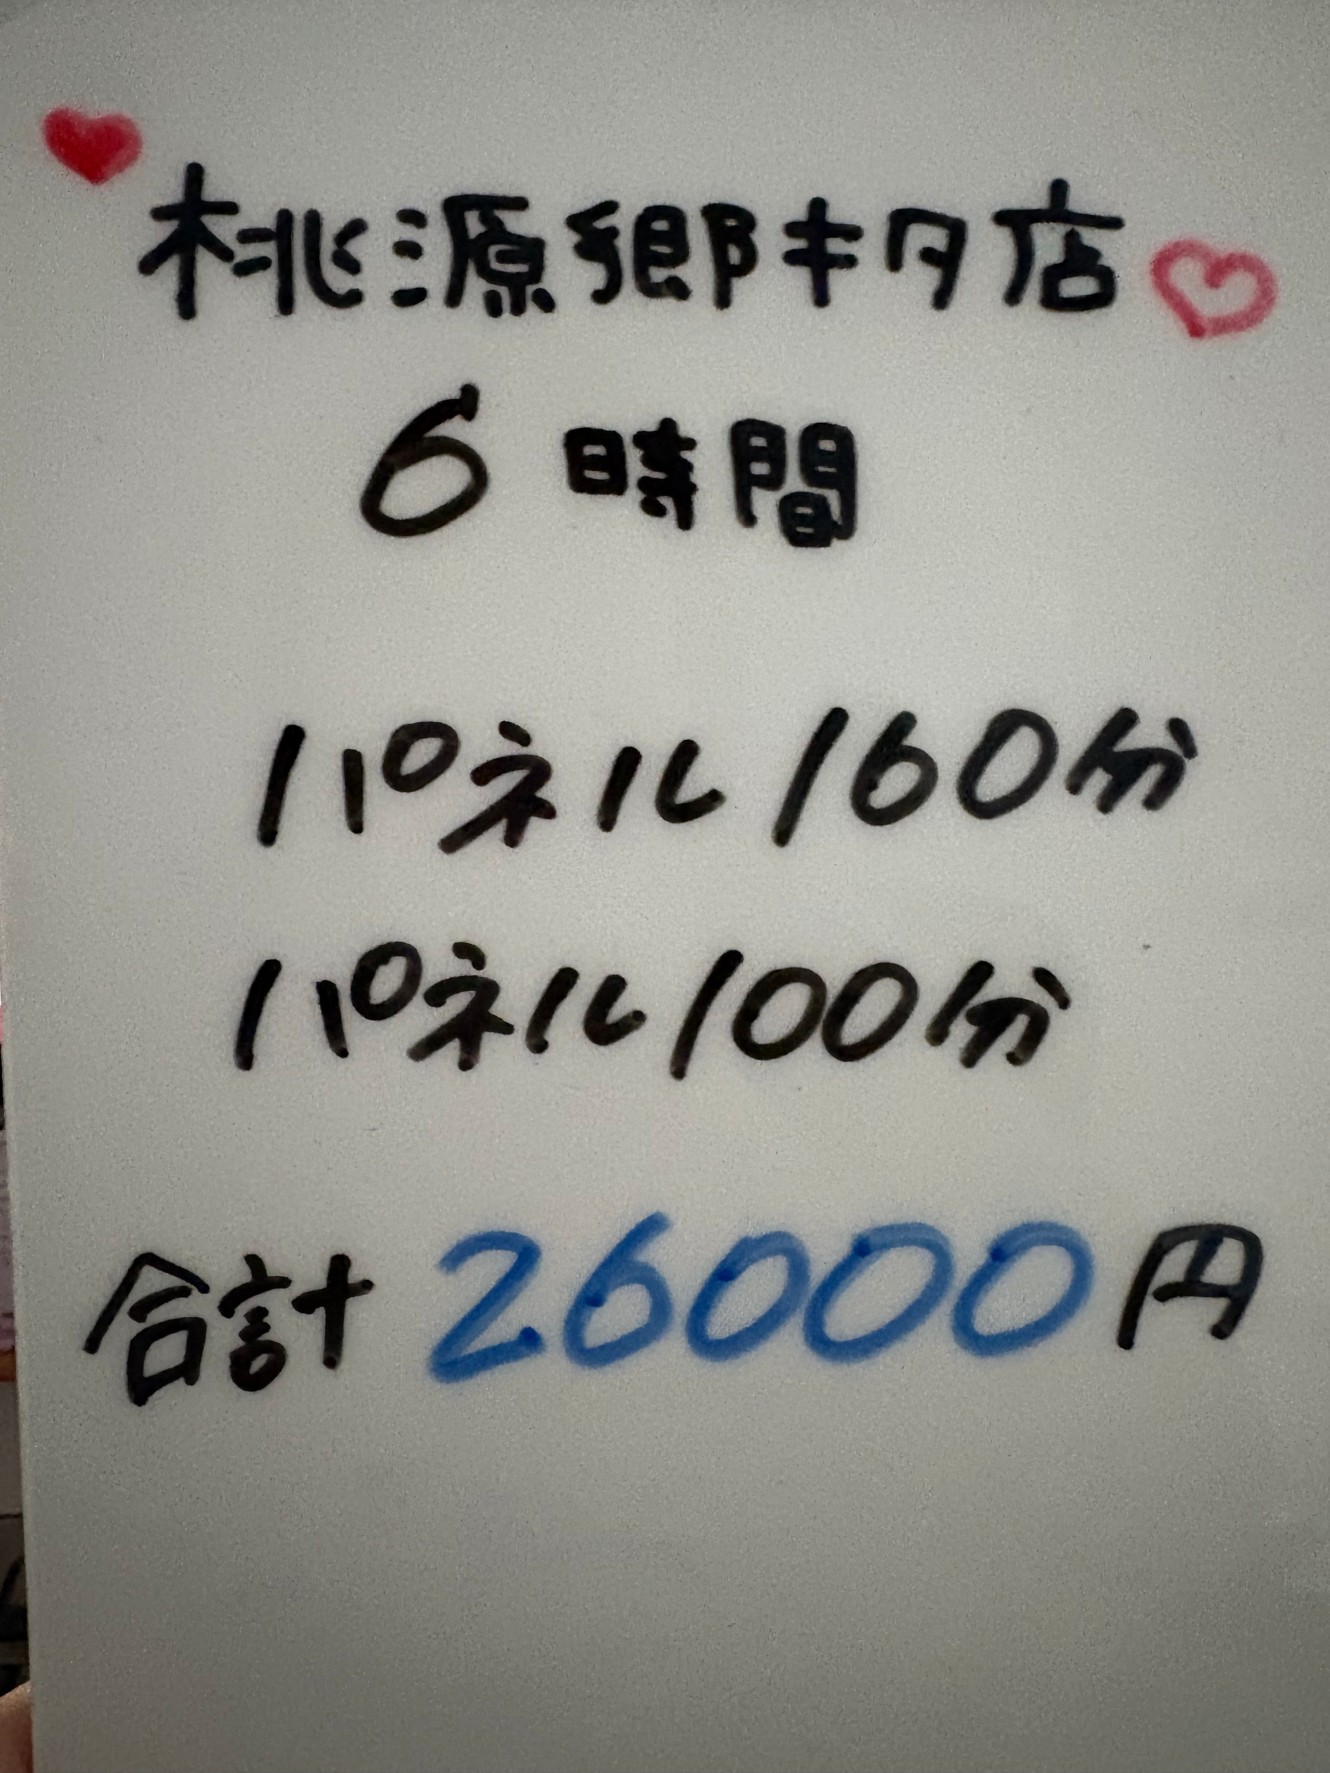 桃源郷キタ店
6時間
1パネル160分
1パネル100分
合計26000円